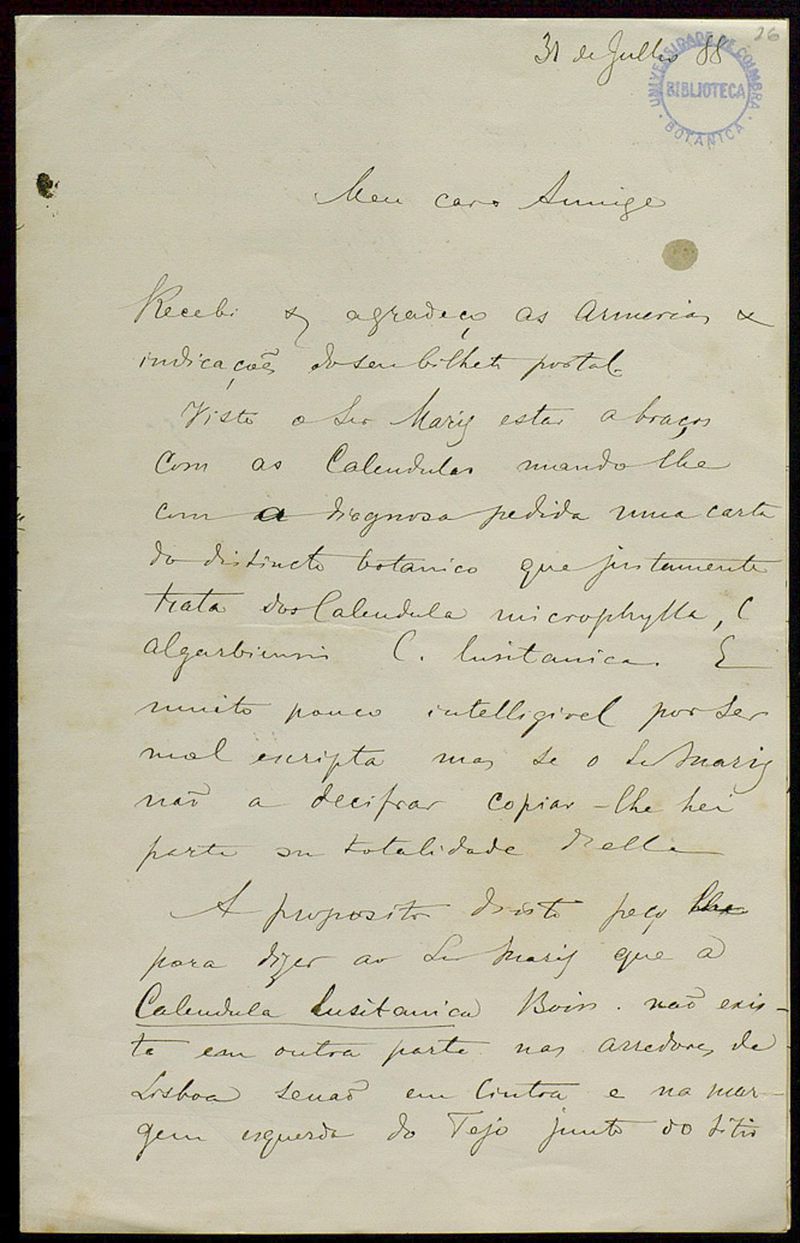 26
31 de Julho 88
UNIVERSIDADE DE COIMBRA
BIBLIOTECA
BOTANICA
Meu caro Amigo
Recebi e agradeço as Armerias e
indicações do seu bilhete postal.
Visto o Snr Mariz estar a braços
com as Calendulas mando lhe
com a diagnose pedida uma carta
do distincto botanico que justamente
trata das Calendula microphylla, C
algarbiensis C. lusitanica. É
muito pouco intelligivel por ser
mal escripta mas se o Snr Mariz
não a decifrar copiar-lhe hei
parte ou totalidade d'ella
A proposito d'isto peço lhe
para dizer ao Snr Mariz que a
Calendula lusitanica Boiss. não exis-
te em outra parte nos arredores de
Lisboa senão em Cintra e na mar-
gem esquerda do Tejo junto do sitio